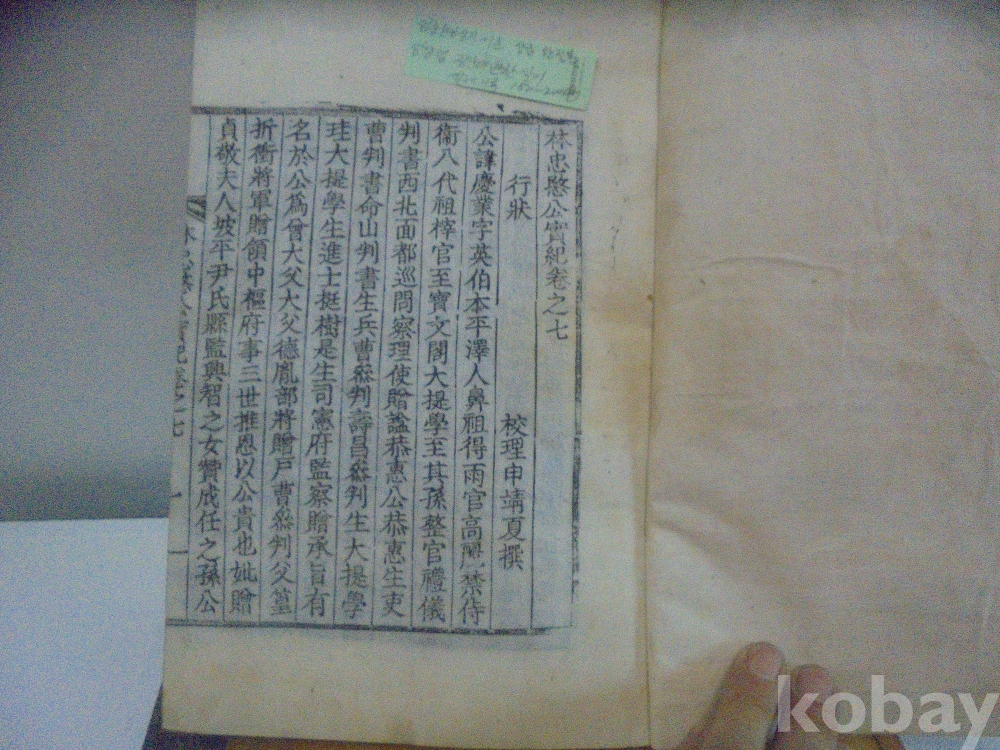 林忠愍公實紀卷之七
行狀 校理申靖夏撰
公諱慶業字英伯本平澤人鼻祖得雨官高麗禁侍
衛八代祖梓官至寶文閣大提學至其孫整官禮儀
判書西北面都巡問察理使贈諡恭惠公恭惠生吏
曹判書命山判書生兵曹叅判壽昌叅判生大提學
珪大提學生進士挺樹是生司憲府監察贈承旨有
名於公爲曾大父大父德胤部將贈戶曹叅判父篁
折衝將軍贈領中樞府事三世推恩以公貴也妣贈
貞敬夫人坡平尹氏縣監興智之女贊成任之孫公
kobay